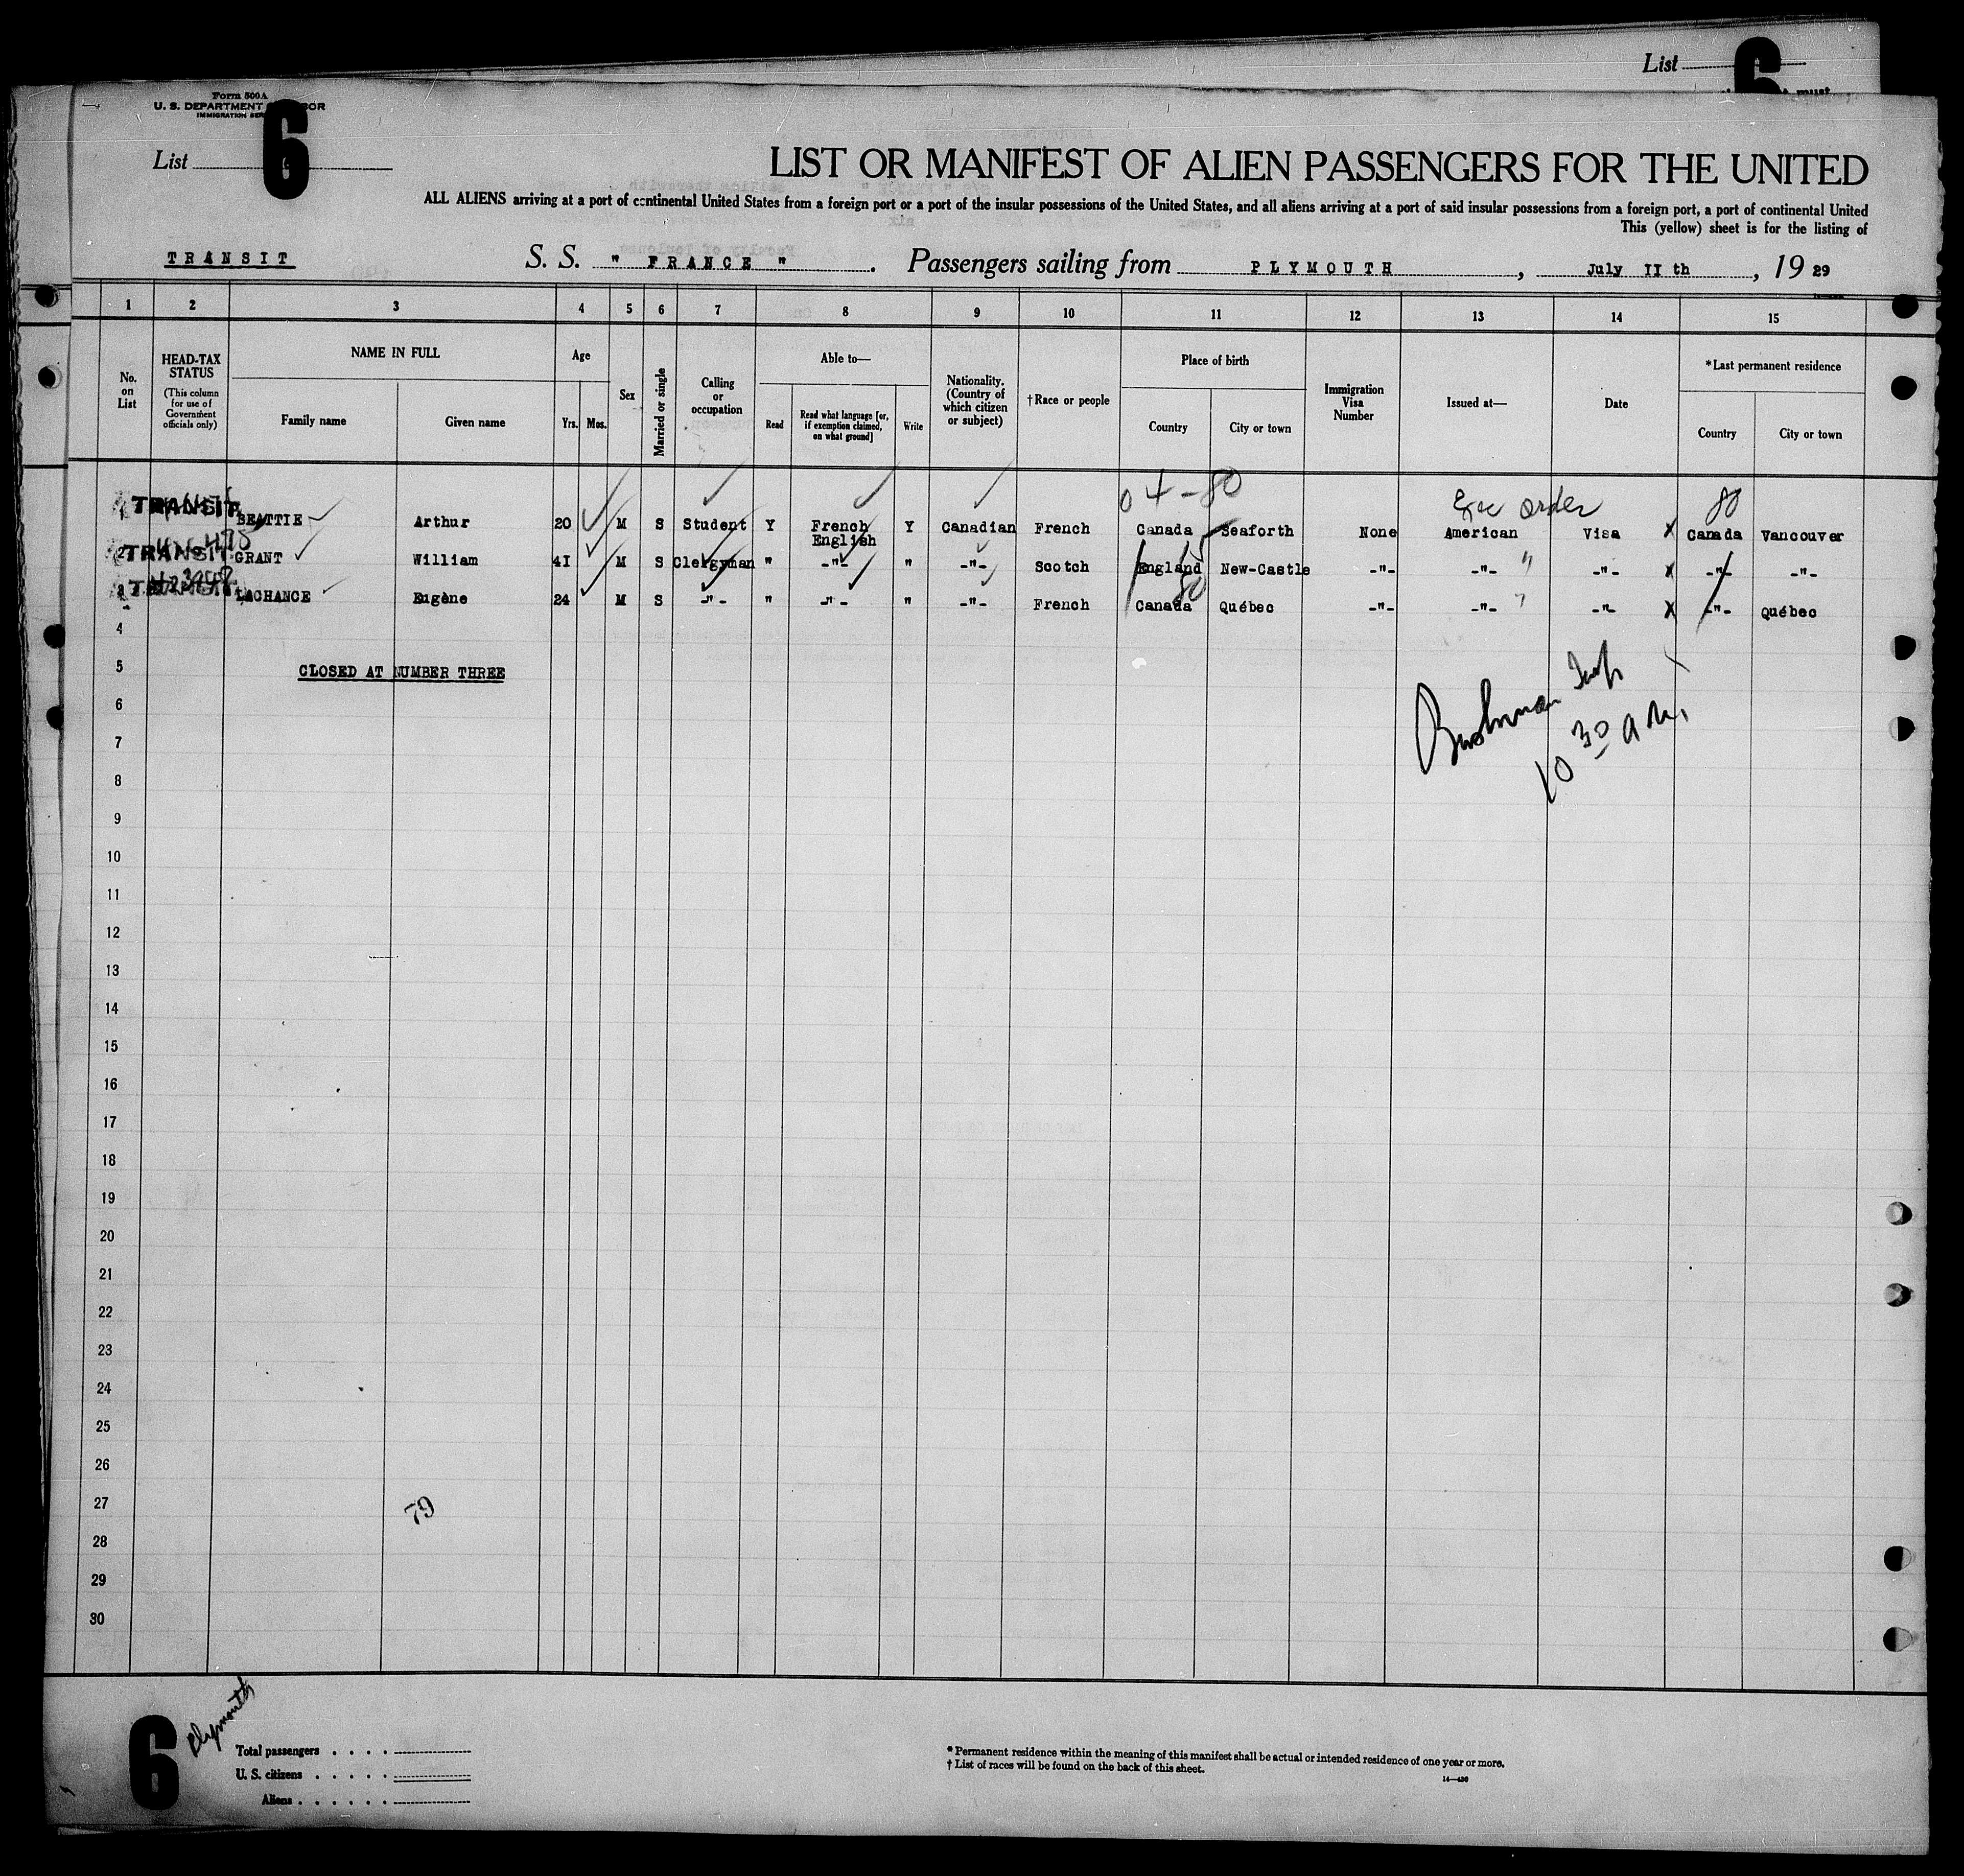 List
6
Form 500A
U. S. DEPARTMENT
IMMIGRATION
List 6
LIST OR MANIFEST OF ALIEN PASSENGERS FOR THE UNITED
ALL ALIENS arriving at a port of continental United States from a foreign port or a port of the insular possessions of the United States, and all aliens arriving at a port of said insular possessions from a foreign port, a port of continental United
This (yellow) sheet is for the listing of
TRANSIT S. S. " FRANCE " . Passengers sailing from PLYMOUTH , July II th , 19 29
1 2 3 4 5 6 7 8 9 10 11 12 13 14 15
No. on List
HEAD-TAX STATUS
(This column for use of Government officials only)
NAME IN FULL
Family name Given name
Age
Yrs. Mos.
Sex
Married or single
Calling or occupation
Able to—
Read Read what language [or, if exemption claimed, on what ground] Write
Nationality. (Country of which citizen or subject)
†Race or people
Place of birth
Country City or town
Immigration Visa Number
Issued at—
Date
*Last permanent residence
Country City or town
04-80 Exe order 80
TRANSIT BEATTIE Arthur 20 M S Student Y French English Y Canadian French Canada Seaforth None American Visa X Canada Vancouver
2 TRANSIT GRANT William 4I M S Clergyman " -"- " -"- Scotch England New-Castle -"- -"- " -"- X -"- -"-
LACHANCE Eugène 24 M S -"- " -"- " -"- French Canada Québec -"- -"- " -"- X -"- Québec
15
80
4
5 CLOSED AT NUMBER THREE
6
7
8
9
10
11
12
13
14
15
16
17
18
19
20
21
22
23
24
25
26
27
28
29
30
Bushman Insp
10 30 a m.
79
6 Plymouth
Total passengers
U. S. citizens
Aliens
* Permanent residence within the meaning of this manifest shall be actual or intended residence of one year or more.
† List of races will be found on the back of this sheet.
14—430